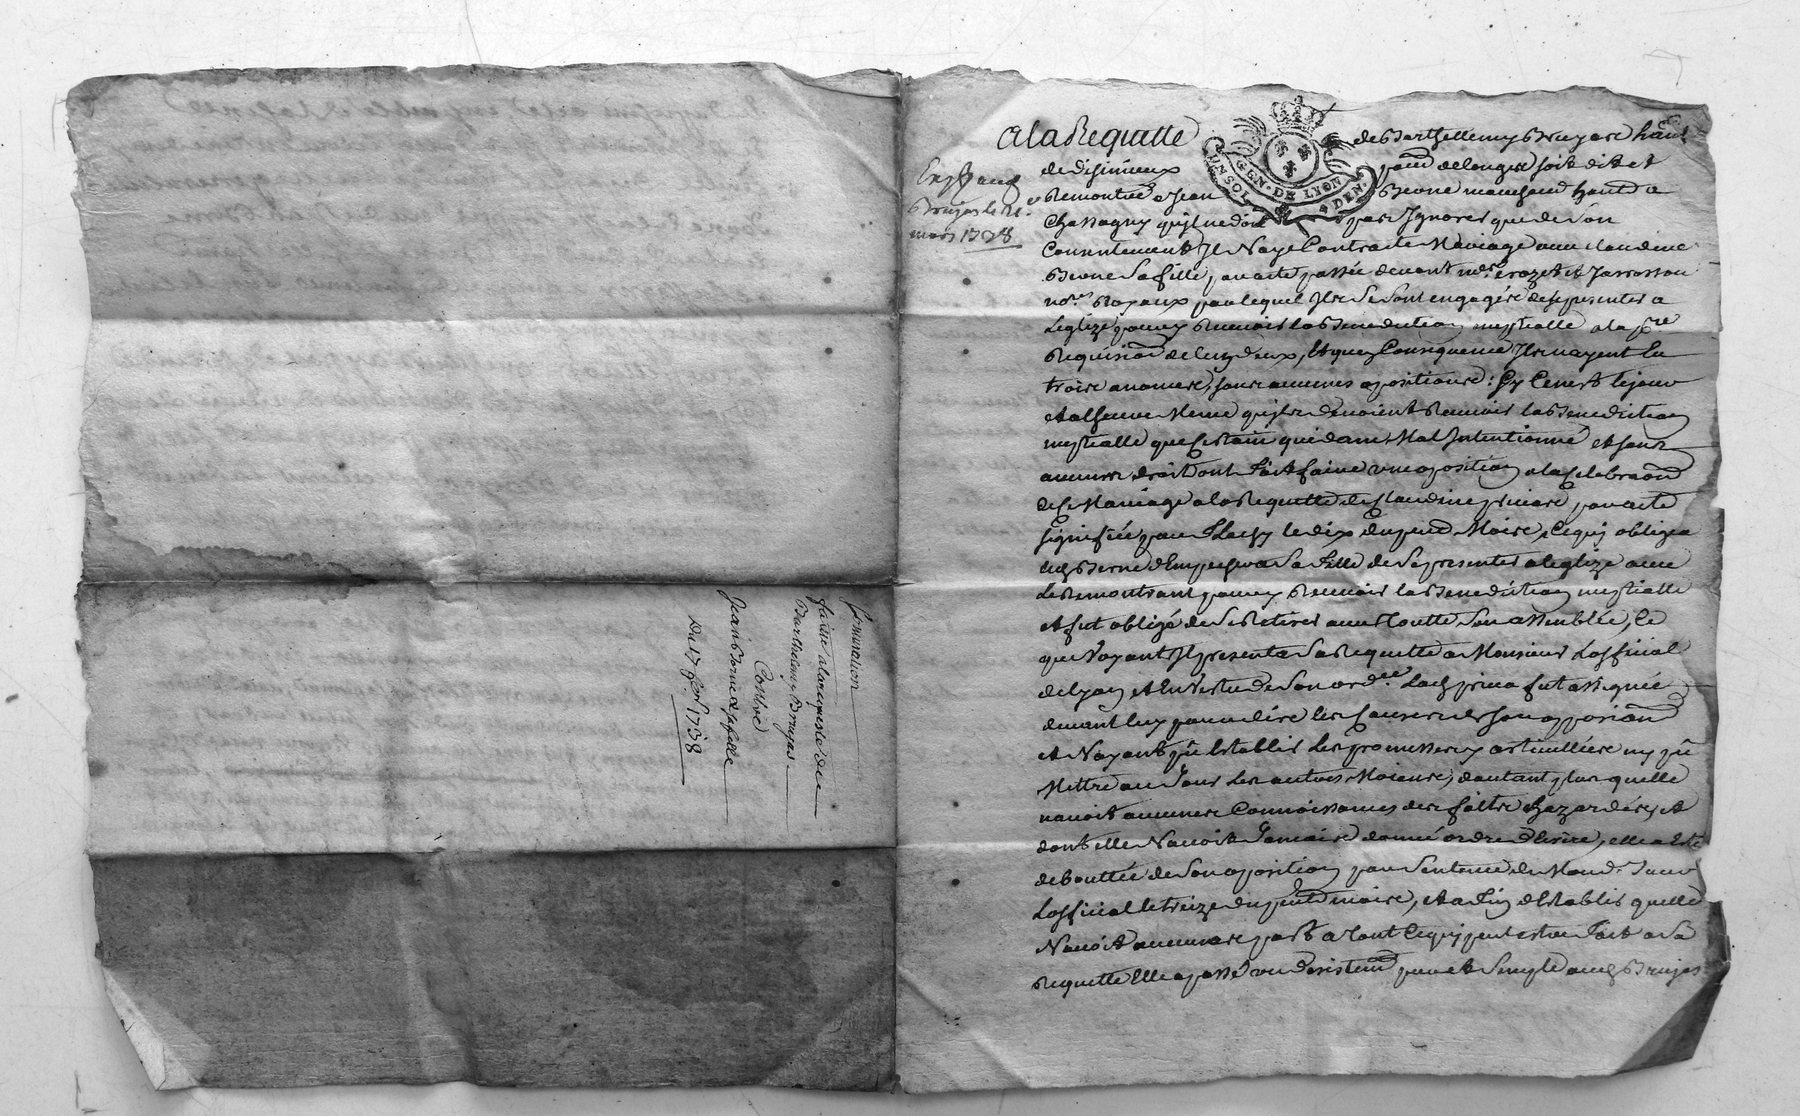 Sommation
faitte a la requeste de
Barthelemy Bruyas
Contre
Jean Berne & sa fille
Du 17 1738
a la Requette de Barthellemy Bruyere habit
de Disimieux de longes soit dit et
Remontré a Jean Berne marchand habitt a
Bruyas le 21
mars 1738
GEN. DE LYON
UN SOL 4 DEN.
Chassagny quil ne doit pas Ignorer que de son
Consentement Il Naye Contracté Mariage avec claudine
Berne Sa fille, par acte passée devant mes. Crozet et
nores Royaux par lequel Ils Se Sont engagés de se presenter a
Leglize pour y Recevoir la Benediction nuptialle a la pre
Requisiaon de lun deux, Et quen Consequence Ils
trois annonces, sans aucunes opositions: Cy Cenest le jour
et alheure Meme quils devoient Recevoir la Benediction
nuptialle que Certain quidam Mal Intentionné et sans
aucuns droit ont fait faire une oposition a la Celebraon
de Ce Mariage a la Requette de Claudine par acte
signifiée par le dix du pent Mois, Ce qui obligea
led Berne d'Empecher Sa fille de Se presenter a leglize avec
Le Remontrant pour y Recevoir la Benediction nuptialle
et fut obligé de Se Retirer avec toutte Son assemblée, Ce
que Voyant Il presenta Sa Requette a Monsieur Lofficial
de lyon et En Vertu de Son ordce Lad fut assignée
devant luy pour dire les Causes de son oposiaon
et Nayant pû Establir Les promesses y articullées ny pû
Mettre au Jour Les autres Moiens, dautant plus quelle
navoit aucunes Connoissances des faits hazardés, et
dont elle Navoit Jamais donné ordre d'Ecrire, elle a Eté
deboutté de Son oposition par Sentence de
Lofficial le treize du pent mois, et a fin d'Establir quelle
Navoit aucunes part a tout Ce qui peut estre fait a Sa
Requette Elle a passé un desistemt aud Bruyas